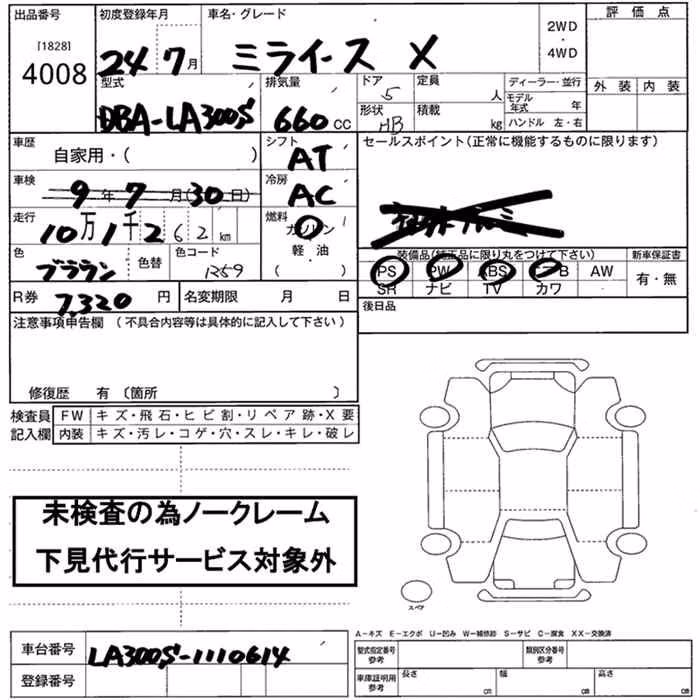 出品番号 初度登録年月 車名・グレード 2WD ・ 4WD 評価点
[1828]
4008 24 7月 ミライース X
外装 内装
型式 排気量 ドア 定員 ディーラー・並行
5 人 モデル年式 年
DBA-LA300S 660 CC 形状 HB 積載 kg ハンドル 左・右
車歴 シフト セールスポイント(正常に機能するものに限ります)
自家用・( ) AT
車検 冷房
9年7月(30日) AC
走行 燃料
10万1千262km ガソリン
装備品(純正品に限り丸をつけて下さい) 新車保証書
色 色替 色コード 軽・油
1259 ( ) PS PW ABS AW 有・無
R券 7,320円 名変期限 月 日 SR ナビ TV カワ
注意事項申告欄 (不具合内容等は具体的に記入して下さい) 後日品
修復歴 有 〔箇所 〕
検査員 FW キズ・飛石・ヒビ割・リペア跡・X要
記入欄 内装 キズ・汚レ・コゲ・穴・スレ・キレ・破レ
未検査の為ノークレーム
下見代行サービス対象外
スペア
A-キズ E-エクボ U-凹み W-補修跡 S-サビ C-腐食 XX-交換済
車台番号 LA300S-1110614 型式指定番号 参考 類別区分番号 参考
登録番号 車庫証明用 参考 長さ cm 幅 cm 高さ cm